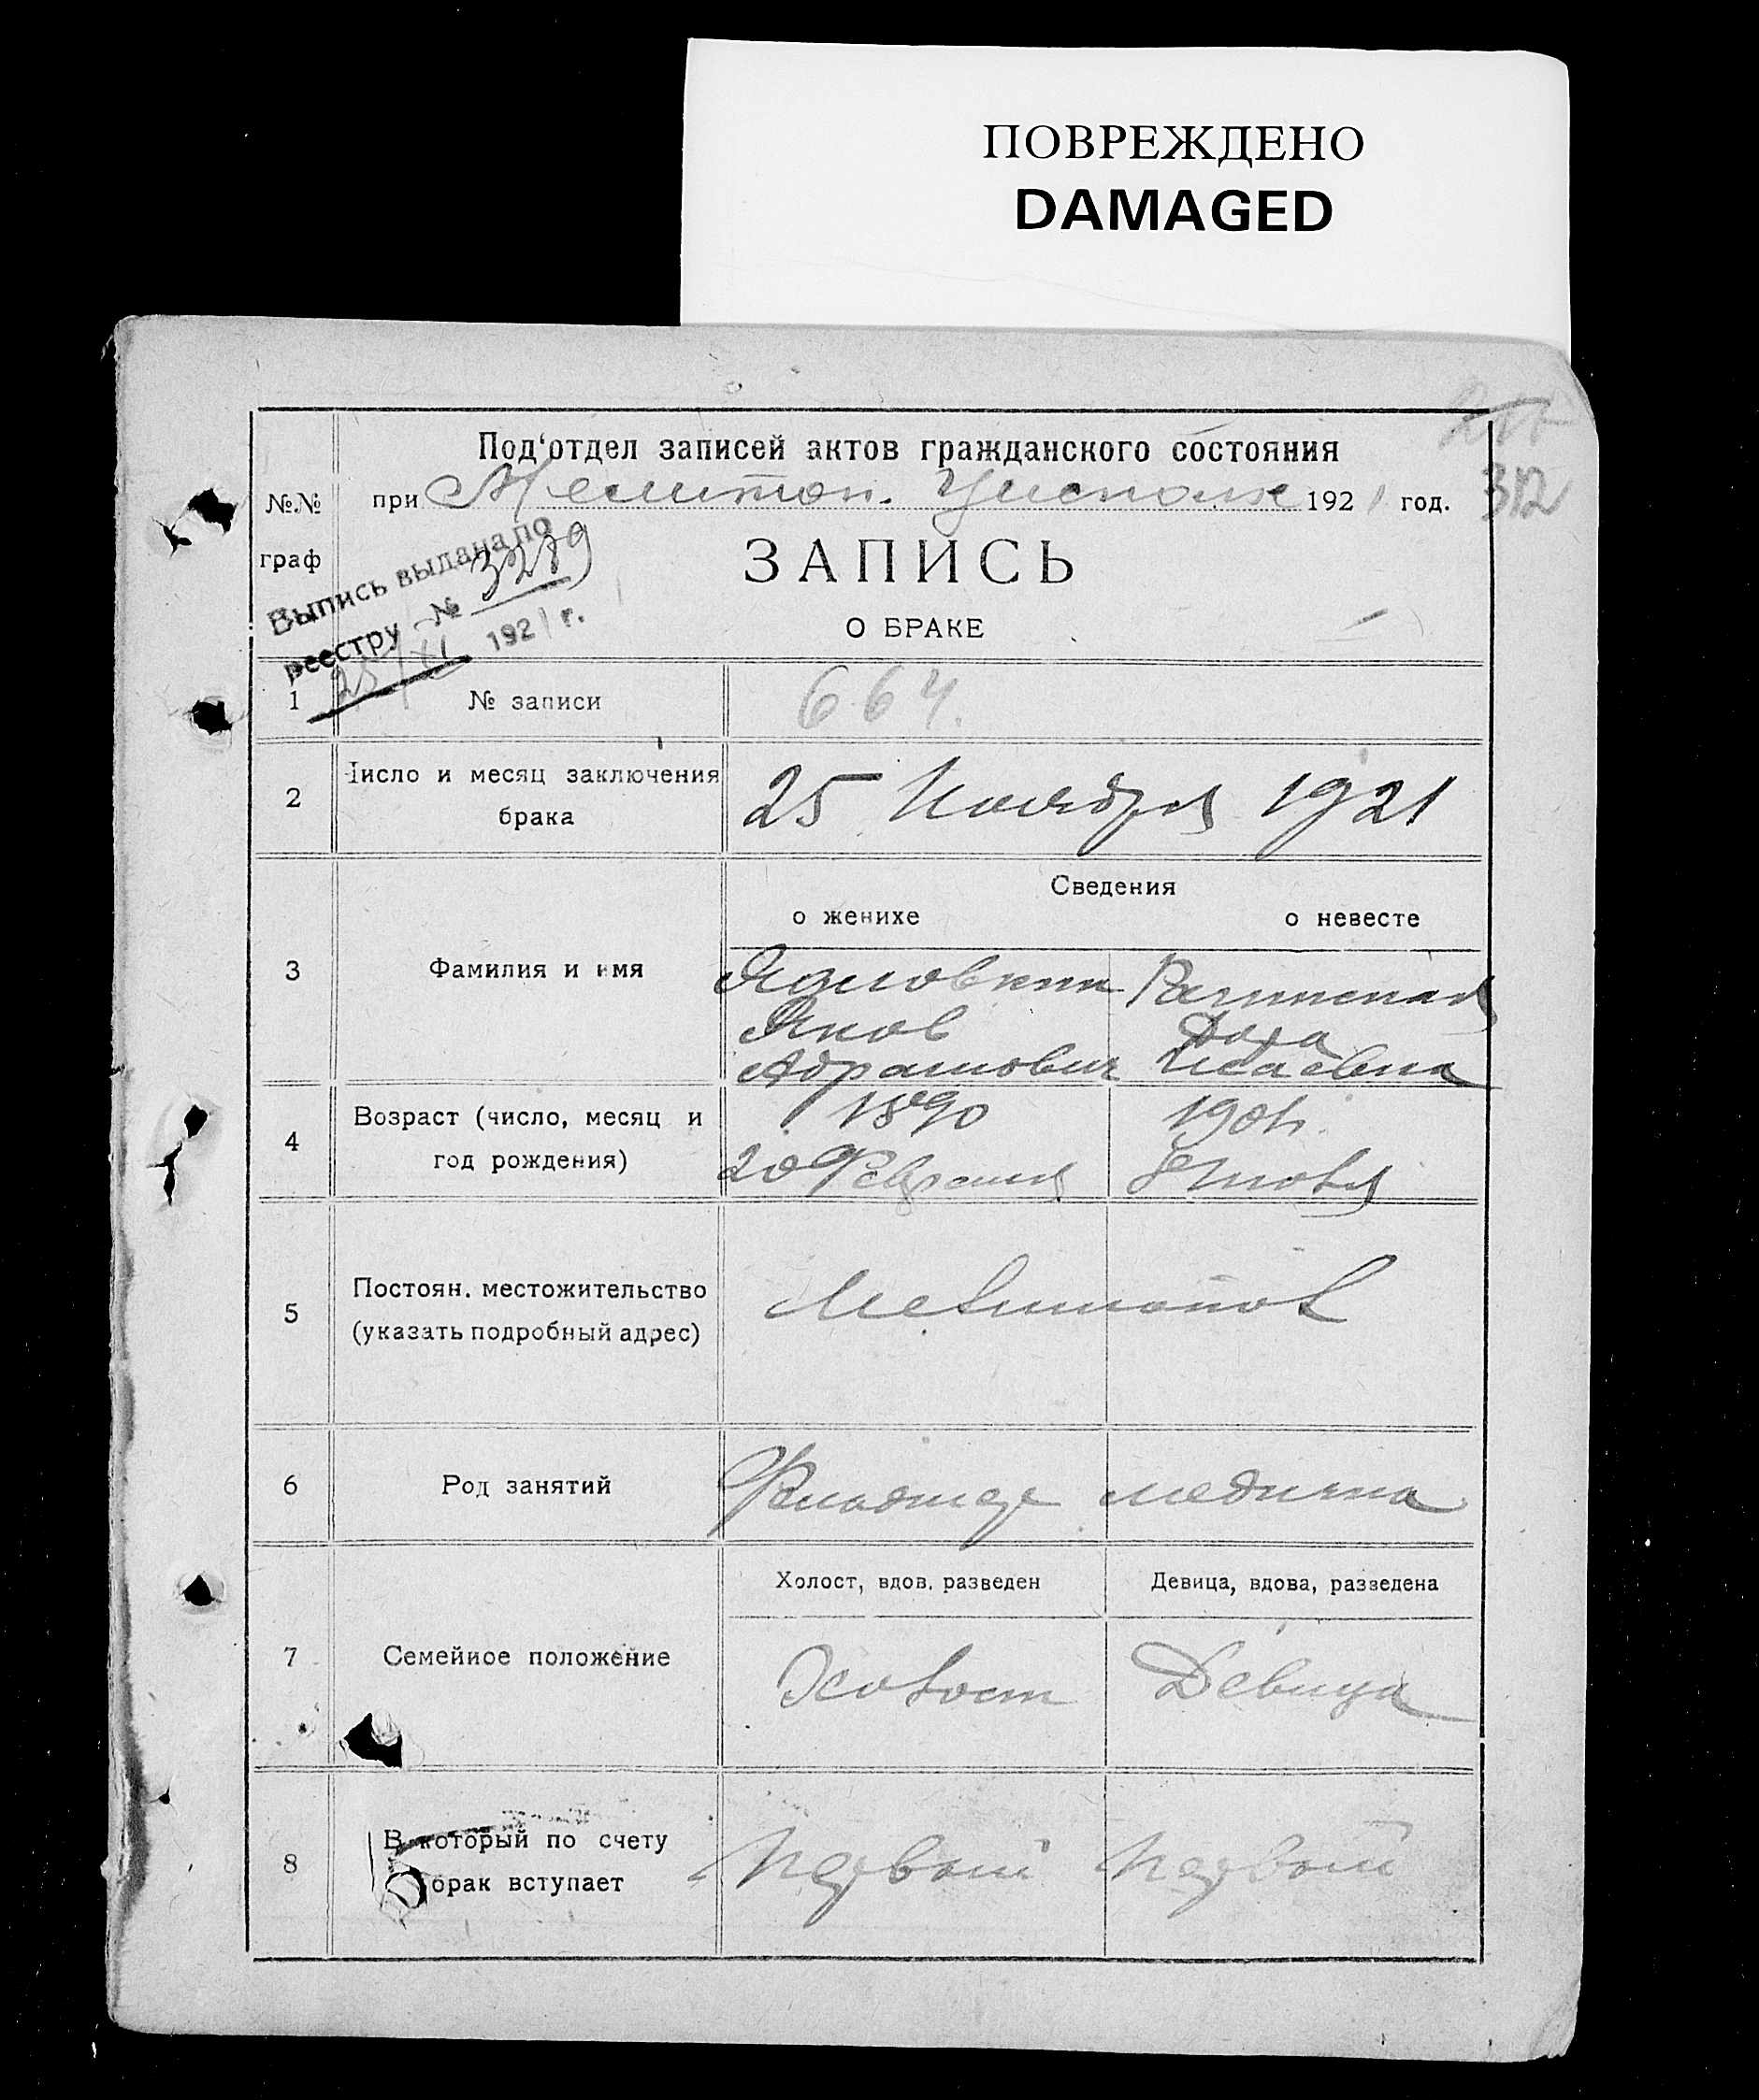 ПОВРЕЖДЕНО
DAMAGED
312
Под'отдел записей актов гражданского состояния
№№ граф
при Мелитоп. Уисполк 1921 год.
Выпись выдана по
реестру № 3289
25/XI 1921 г.
ЗАПИСЬ
О БРАКЕ
1 № записи 664.
2 Число и месяц заключения
брака
25 Ноября 1921
Сведения
о женихе о невесте
3 Фамилия и имя
Яков Дора
Абрамович Исаевна
4 Возраст (число, месяц и
год рождения)
1890 1901
20 Февраля 8 Июля
5 Постоян. местожительство
(указать подробный адрес)
Мелитополь
6 Род занятий
медичка
Холост, вдов. разведен Девица, вдова, разведена
7 Семейное положение
Холост Девица
8 В который по счету
брак вступает
Первый Первый